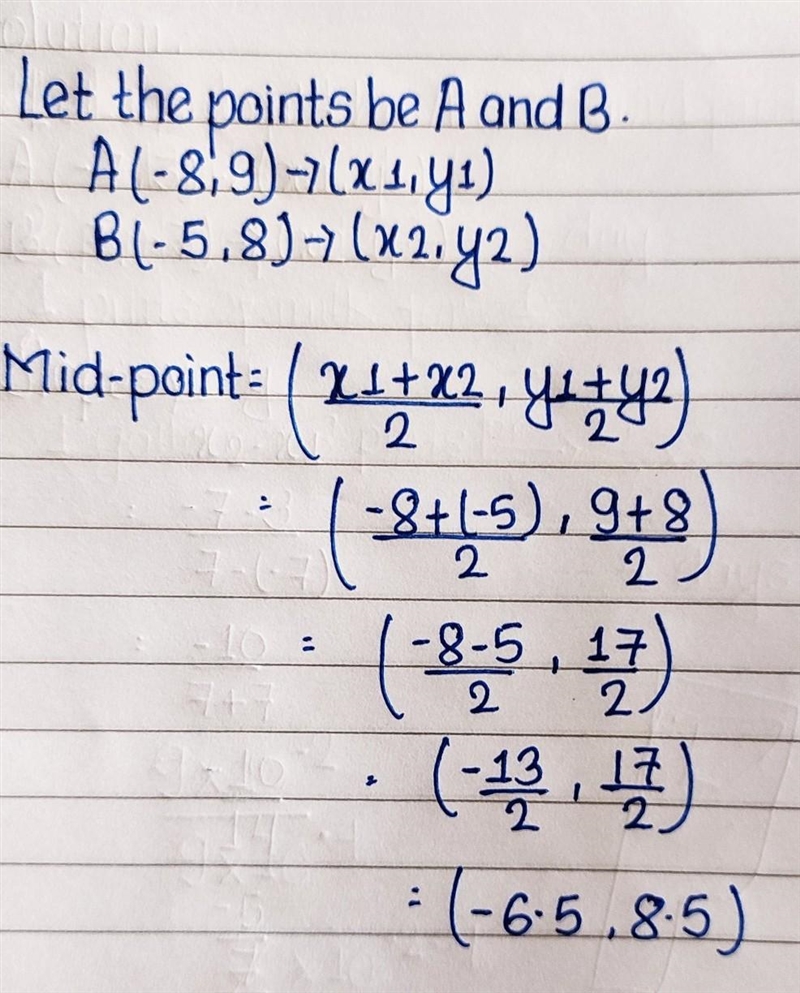 olution.
Let the points be A and B.
A(-8,9)→(x1,y1)
B(-5,8)→(x2,y2)
Mid-point = (x1+x2/2, y1+y2/2)
= (-8+(-5)/2, 9+8/2)
= (-8-5/2, 17/2)
= (-13/2, 17/2)
= (-6.5, 8.5)